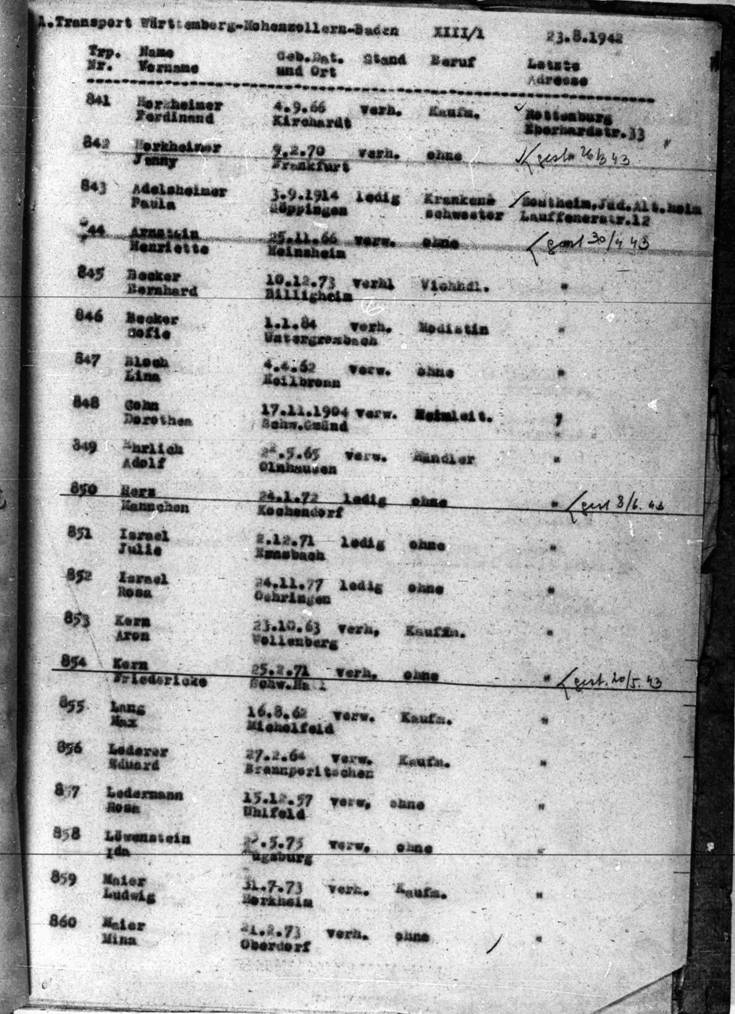 1.Transport Württemberg-Hohenzollern-Baden XIII/1 23.8.1942
Trp. Name Geb.Dat. Stand Beruf Letzte
Nr. Vorname und Ort Adresse
841 Horkheimer 4.9.66 verh. Kaufm. Rottenburg
Ferdinand Kirchardt Eberhardstr.33
842 Horkheimer 9.2.70 verh. ohne gest. 26/3 43
Jenny Frankfurt
843 Adelsheimer 3.9.1914 ledig Krankens Sontheim,Jüd.Alt.heim
Paula Göppingen schwester Lauffenerstr.12
844 Arnstein 25.11.66 verw. ohne gest 30/4 43
Henriette Heinsheim
845 Becker 10.12.73 verhl Viehhdl. "
Bernhard Billigheim
846 Becker 1.1.84 verh. Modistin "
Sofie Untergrombach
847 Bloch 4.4.62 verw. ohne "
Lina Heilbronn
848 Cohn 17.11.1904 verw. Heimleit. "
Dorothea Schw.Gmünd
849 Ehrlich .5.65 verw. Händler "
Adolf Olnhausen
850 Herz 24.1.72 ledig ohne " gest 3/6. 43
Mannchen Kochendorf
851 Israel 2.12.71 ledig ohne "
Julie Ernsbach
852 Israel 24.11.77 ledig ohne "
Rosa Oehringen
853 Kern 23.10.63 verh, Kauffm. "
Aron Wollenberg
854 Kern 25.2.71 verh. ohne " gest. 20/5. 43
Friedericke Schw.Hall
855 Lang 16.8.62 verw. Kaufm. "
Max Michelfeld
856 Lederer 27.2.64 verw. Kaufm. "
Eduard Brennporitschen
857 Ledermann 15.12.57 verw, ohne "
Rosa Uhlfeld
858 Löwenstein .5.75 verw. ohne "
Ida Augsburg
859 Maier 31.7.73 verh. Kaufm. "
Ludwig Horkheim
860 Maier 21.2.73 verh. ohne "
Mina Oberdorf